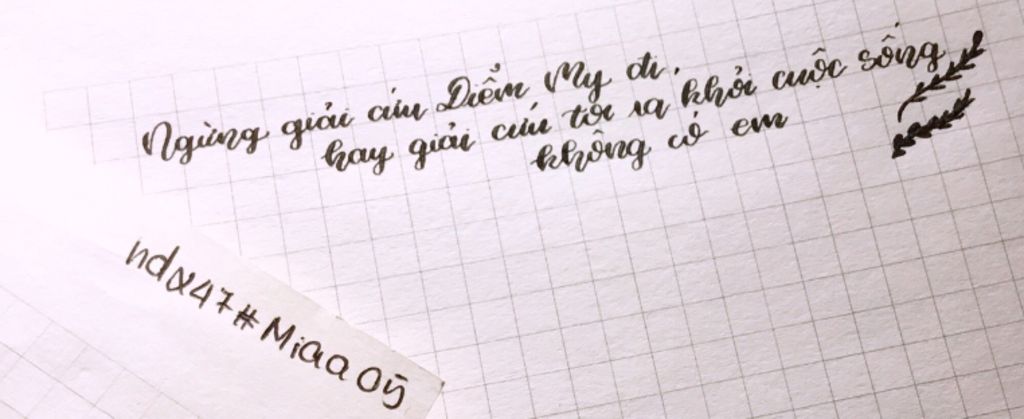 Ngừng giải cứu Diễm My đi,
hay giải cứu tôi ra khỏi cuộc sống
không có em
ndx47#Miaa05